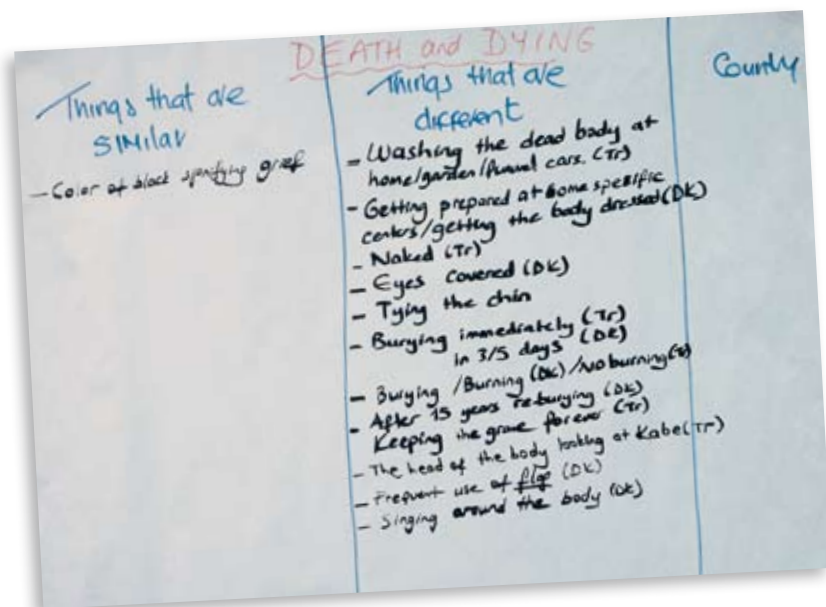 DEATH and DYING
Things that are
SIMilar
- Color of black spesifying grief
Things that are
different
- Washing the dead body at
home/garden/funural cars. (Tr)
- Getting prepared at some spesific
centers/getting the body dressed (DK)
- Naked (Tr)
- Eyes covered (DK)
- Tying the chin
- Burying immediately (Tr)
in 3/5 days (DK)
- Burying /Burning (DK) /No burning
- After 15 years re-burying (DK)
Keeping the grave forever (Tr)
- The head of the body looking at Kabe (Tr)
- Frequent use of flag (DK)
- Singing around the body (DK)
Country